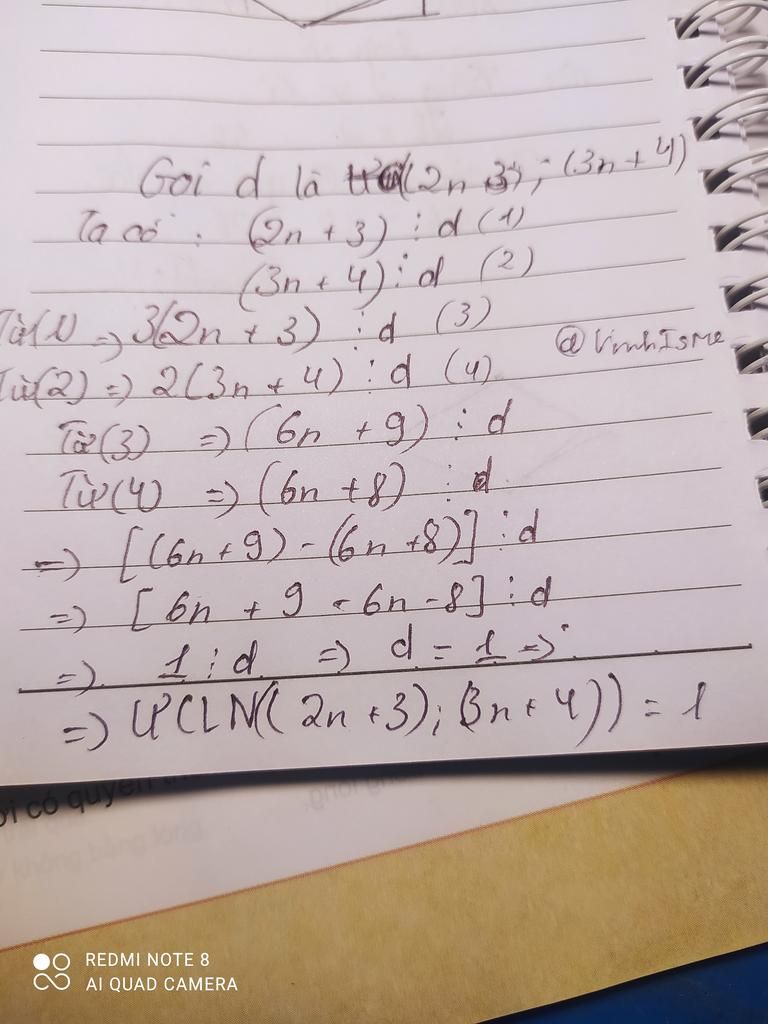 Gọi d là ƯC((2n+3); (3n+4)
Ta có: (2n+3) ⋮ d (1)
(3n+4) ⋮ d (2)
Từ(1) => 3(2n+3) ⋮ d (3)
@VinhIsMe
Từ(2) => 2(3n+4) ⋮ d (4)
Từ(3) => (6n+9) ⋮ d
Từ(4) => (6n+8) ⋮ d
=> [(6n+9)-(6n+8)] ⋮ d
=> [6n+9-6n-8] ⋮ d
=> 1 ⋮ d => d = 1 =>
=> ƯCLN((2n+3); (3n+4)) = 1
ời có quyền
không bằng lòng
REDMI NOTE 8
AI QUAD CAMERA